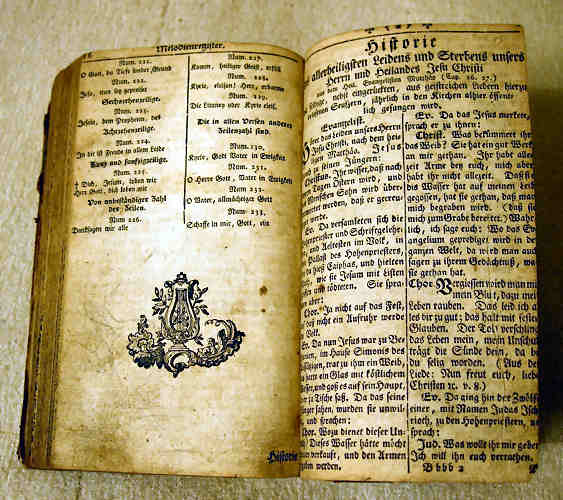 Melodienregister.
Num. 221.
O Gott, du Tiefe sonder Grund
Num. 222.
Jesu, nun sey gepreiset
Sechzehenzeilige.
Num. 223.
Jesaia, dem Propheten, des
Achtzehenzeilige.
Num. 224.
In dir ist Freude in allem Leide
Zwey und funfzigzeilige.
Num. 225.
† Dich, Jesum, loben wir
Herr Gott, dich loben wir
Von unbeständiger Zahl
der Zeilen.
Num. 226.
Danksagen wir alle
Num. 227.
Komm, heiliger Geist, erfüll
Num. 228.
Kyrie, eleison! Herr, erbarme
Num. 229.
Die Litaney oder Kyrie eleis.
Die in allen Versen anderer
Zeilenzahl sind.
Num. 230.
Kyrie, Gott Vater in Ewigkeit
Num. 231.
O Herre Gott, Vater in Ewigkeit
Num. 232.
O Vater, allmächtiger Gott
Num. 233.
Schaffe in mir, Gott, ein
Historie
Historie
allerheiligsten Leidens und Sterbens unsers
Herrn und Heilandes Jesu Christi
aus dem Heil. Evangelisten Matthäo (Cap. 26. 27.)
nebst eingerückten, aus geistreichen Liedern hierzu
Seufzern, jährlich in den Kirchen allhier öffent-
lich gesungen wird.
Evangelist.
Höret das Leiden unsers Herrn
Jesu Christi, nach dem hei-
ligen Matthäo. Jesus
zu seinen Jüngern:
Christ. Ihr wisset, daß nach
Tagen Ostern wird, und
Menschen Sohn wird über-
antwortet werden, daß er gecreu-
werde.
Ev. Da versamleten sich die
Hohenpriester und Schriftgelehr-
und Aeltesten im Volk, in
Pallast des Hohenpriesters,
da hieß Caiphas, und hielten
wie sie Jesum mit Listen
und tödteten. Sie spra-
aber:
Chor. Ja nicht auf das Fest,
daß nicht ein Aufruhr werde
Volk.
Ev. Da nun Jesus war zu Be-
im Hause Simonis des
Aussätzigen, trat zu ihm ein Weib,
hatte ein Glas mit köstlichem
Wasser, und goß es auf sein Haupt,
er zu Tische saß. Da das seine
Jünger sahen, wurden sie unwil-
und sprachen:
Chor. Wozu dienet dieser Un-
Dieses Wasser hätte möcht
verkauft, und den Armen
geben werden.
Ev. Da das Jesus merkete,
sprach er zu ihnen:
Christ. Was bekümmert ihr
das Weib? Sie hat ein gut Werk
an mir gethan. Ihr habt alle-
zeit Arme bey euch, mich aber
habt ihr nicht allezeit. Daß sie
dis Wasser hat auf meinen Leib
gegossen, hat sie gethan, daß man
mich begraben wird. (daß sie
mich zum Grabe bereitet.) Wahr-
lich, ich sage euch: Wo das Ev-
angelium geprediget wird in der
ganzen Welt, da wird man auch
sagen zu ihrem Gedächtniß, was
sie gethan hat.
Chor. Vergiessen wird man mir
mein Blut, dazu mein
Leben rauben. Das leid ich al-
les dir zu gut: das halt mit festem
Glauben. Der Tod verschling
das Leben mein, mein Unschuld
trägt die Sünde dein, da bist
du selig worden. (Aus dem
Liede: Nun freut euch, liebe
Christen ꝛc. v. 8.)
Ev. Da ging hin der Zwölfe
einer, mit Namen Judas Isch-
rioth, zu den Hohenpriestern, und
sprach:
Jud. Was wollt ihr mir geben
Ich will ihn euch verrathen.
B bbb 2